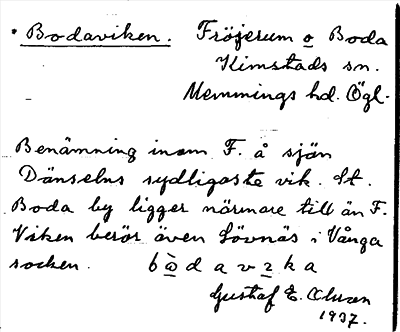 Bodaviken. Fröjerum o Boda
Kimstads sn.
Memmings hd. Ögl.
Benämning inom F. å sjön
Dänselns sydligaste vik. St.
Boda by ligger närmare till än F.
Viken berör även Lövnäs i Vånga
socken.
Gustaf E. Olson
1937.